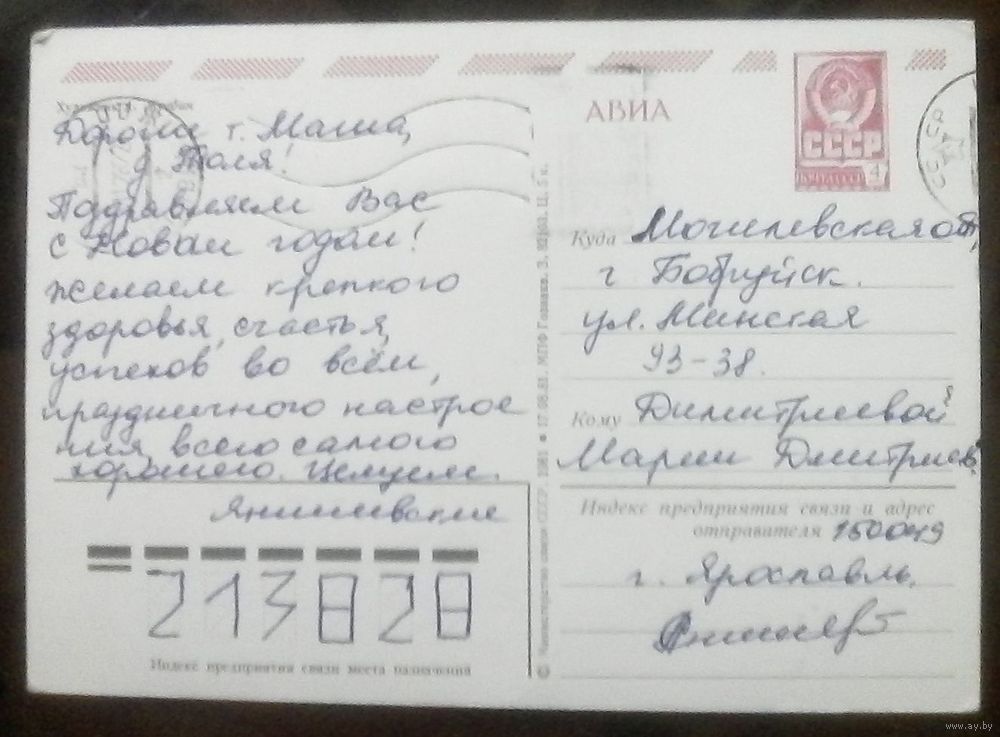 Дорогие т. Маша,
д Толя!
Поздравляем Вас
с Новым годом!
желаем крепкого
здоровья, счастья,
успехов во всём,
праздничного настрое
ния, всего самого
хорошего. Целуем.
Янишевские
213828
Индекс предприятия связи места назначения
© Министерство связи СССР. 1981 17.06.81. МПФ Гознака. З. Ц. 5 к.
АВИА
СССР
ПОЧТА СССР 4
Куда Могилевская об
г Бобруйск.
ул. Минская
93-38.
Кому Димитриевой
Марии Дмитриев
Индекс предприятия связи и адрес
отправителя 150049
г. Ярославль.
www.ay.by